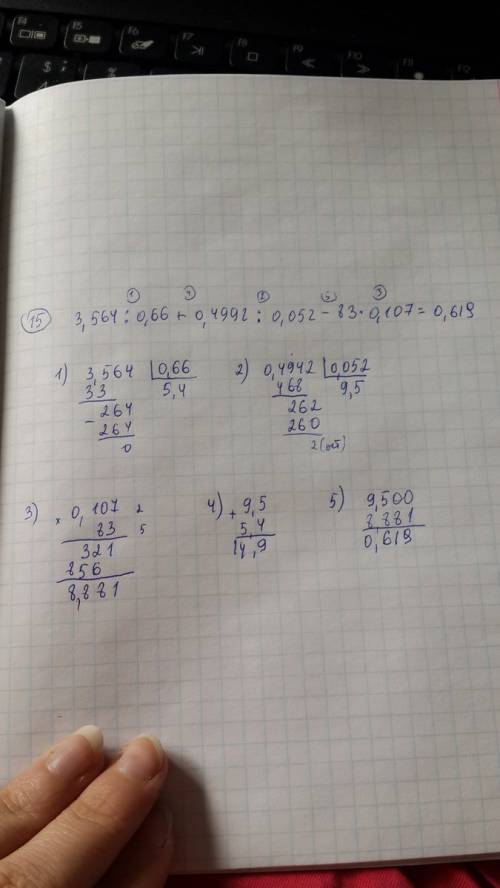 ① ④ ② ⑤ ③
⑮ 3,564 : 0,66 + 0,4992 : 0,052 - 83 · 0,107 = 0,619
1) 3,564 0,66 2) 0,4942 0,052
33 5,4 468 9,5
- 264 262
264 260
0 2(ост)
3) × 0,107 2 4) + 9,5 5) 9,500
83 5 5,4 8,881
321 14,9 0,619
856
8,881